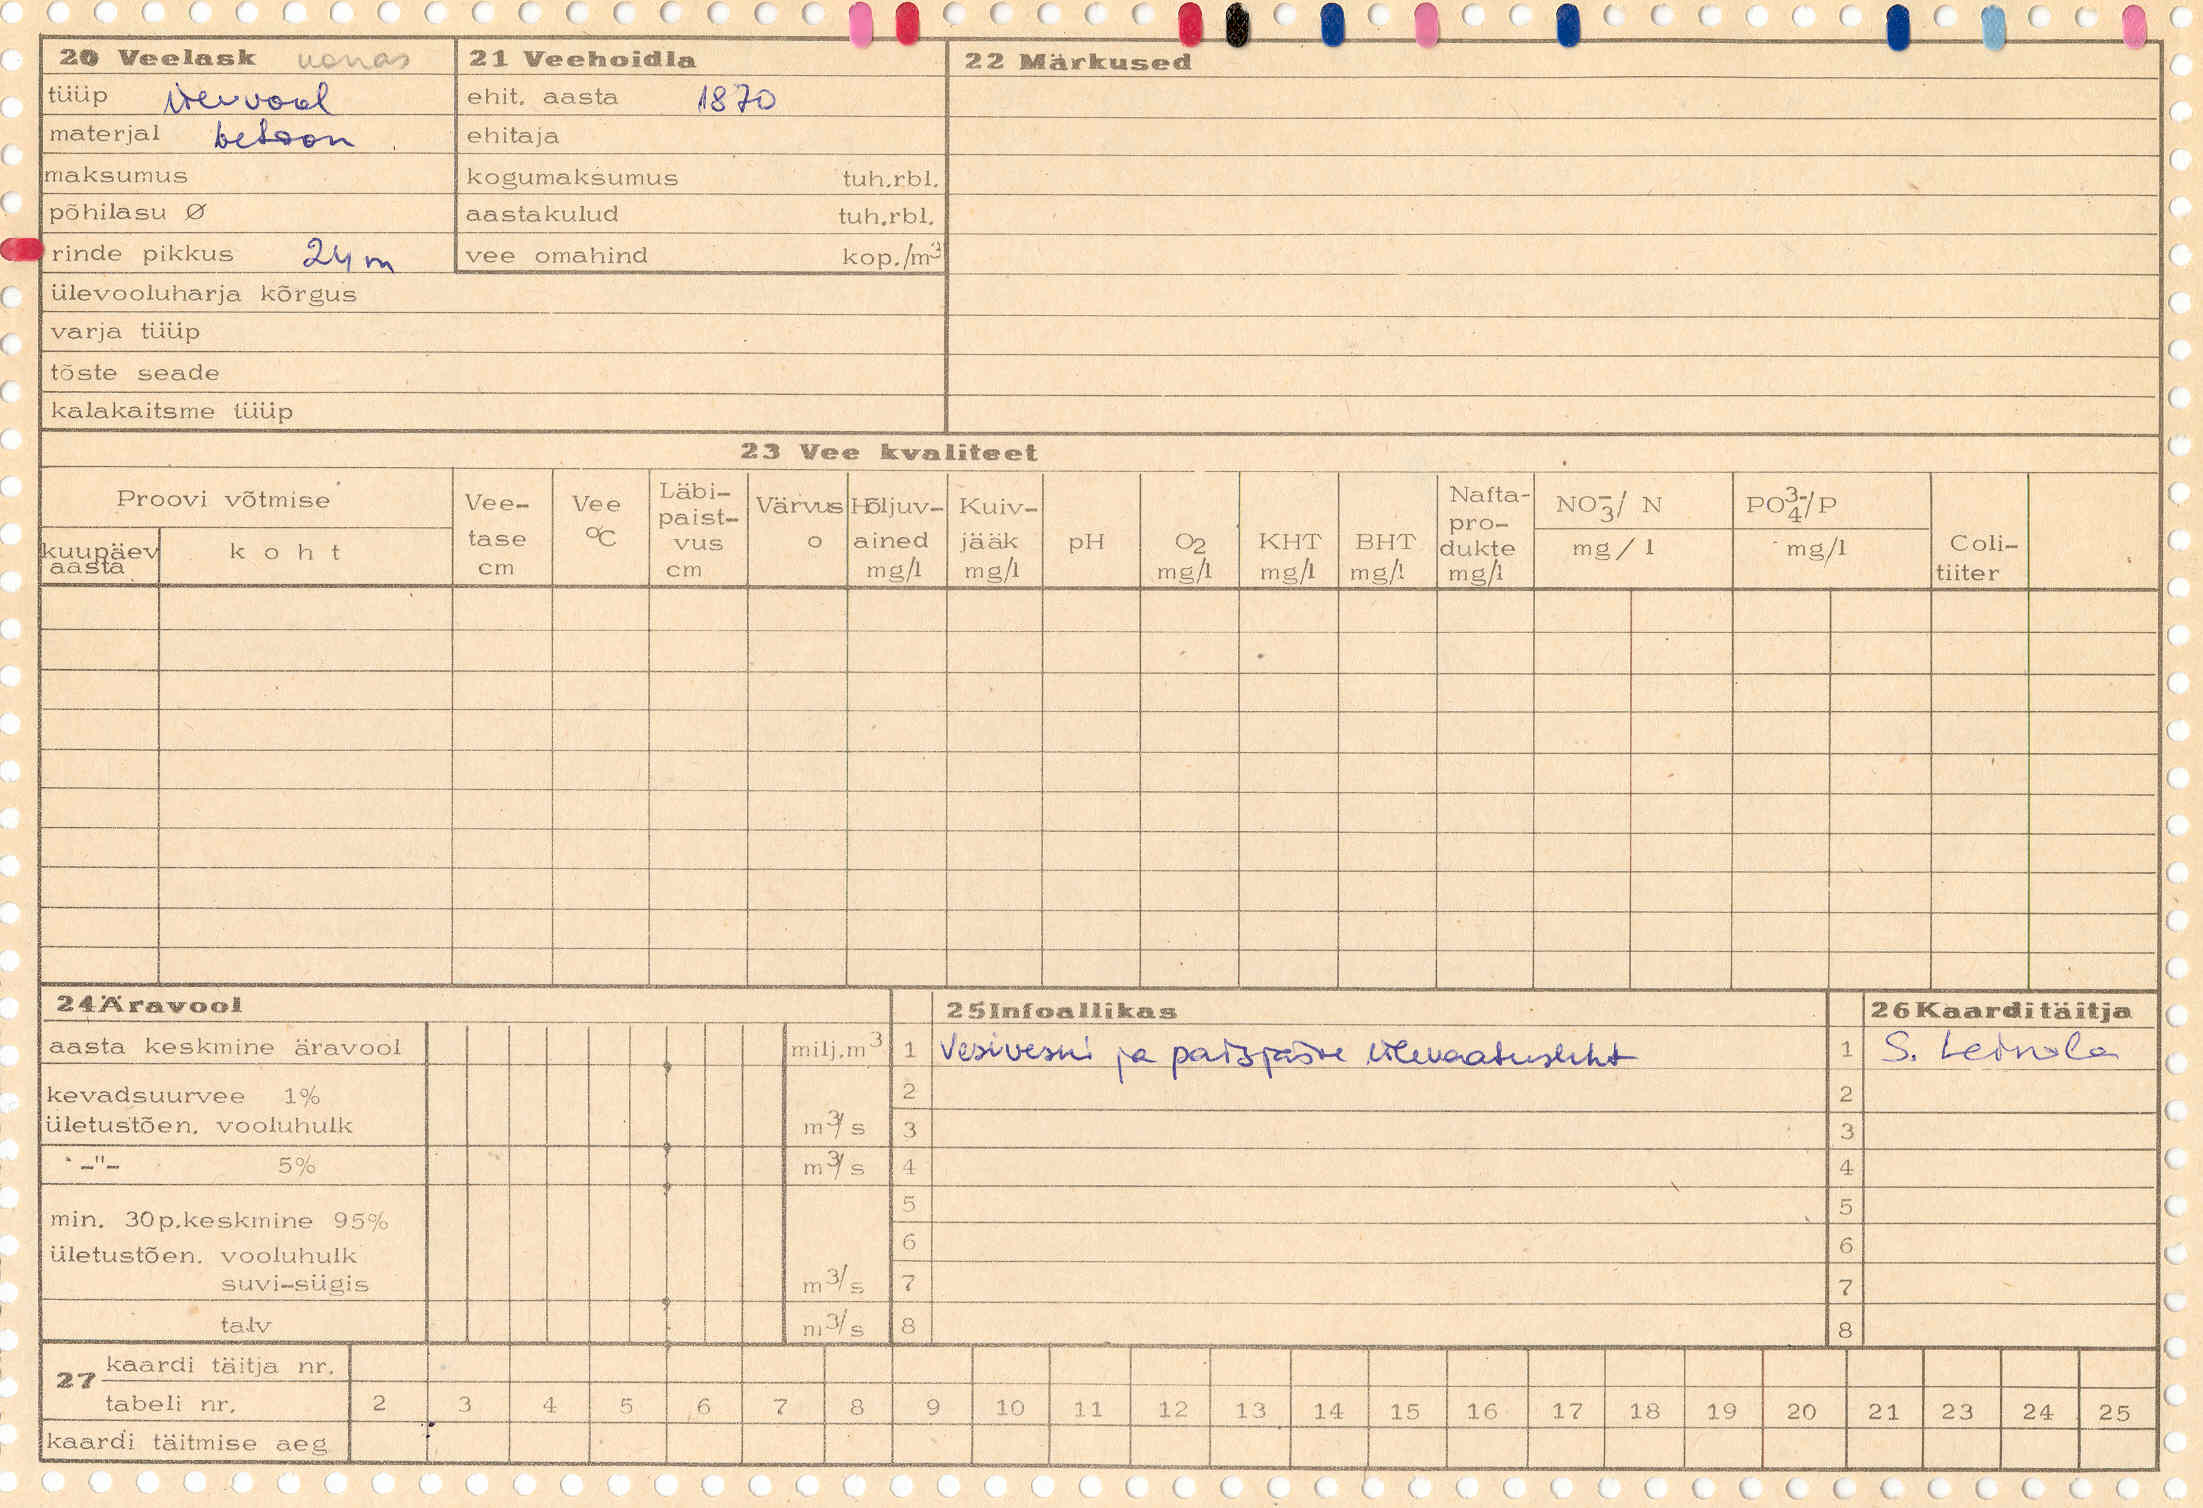 20 Veelask vanas
tüüp ülevool
materjal betoon
maksumus
põhilasu Ø
rinde pikkus 24 m
ülevooluharja kõrgus
varja tüüp
tõste seade
kalakaitsme tüüp
21 Veehoidla
ehit. aasta 1870
ehitaja
kogumaksumus tuh.rbl.
aastakulud tuh.rbl.
vee omahind kop./m³
22 Märkused
23 Vee kvaliteet
Proovi võtmise
kuupäev aasta
koht
Vee-
tase
cm
Vee
°C
Läbi-
paist-
vus
cm
Värvus
o
Hõljuv-
ained
mg/l
Kuiv-
jääk
mg/l
pH
O2
mg/l
KHT
mg/l
BHT
mg/l
Nafta-
pro-
dukte
mg/l
NO3-/ N
mg/l
PO4 3-/P
mg/l
Coli-
tiiter
24 Äravool
aasta keskmine äravool milj.m³
kevadsuurvee 1%
ületustõen. vooluhulk m³/s
-"- 5% m³/s
min. 30p.keskmine 95%
ületustõen. vooluhulk
suvi-sügis m³/s
talv m³/s
25 Infoallikas
1 Vesiveski ja paisjärve ülevaatusleht
2
3
4
5
6
7
8
26 Kaarditäitja
1 S. Leinola
2
3
4
5
6
7
8
27 kaardi täitja nr.
tabeli nr. 2 3 4 5 6 7 8 9 10 11 12 13 14 15 16 17 18 19 20 21 23 24 25
kaardi täitmise aeg